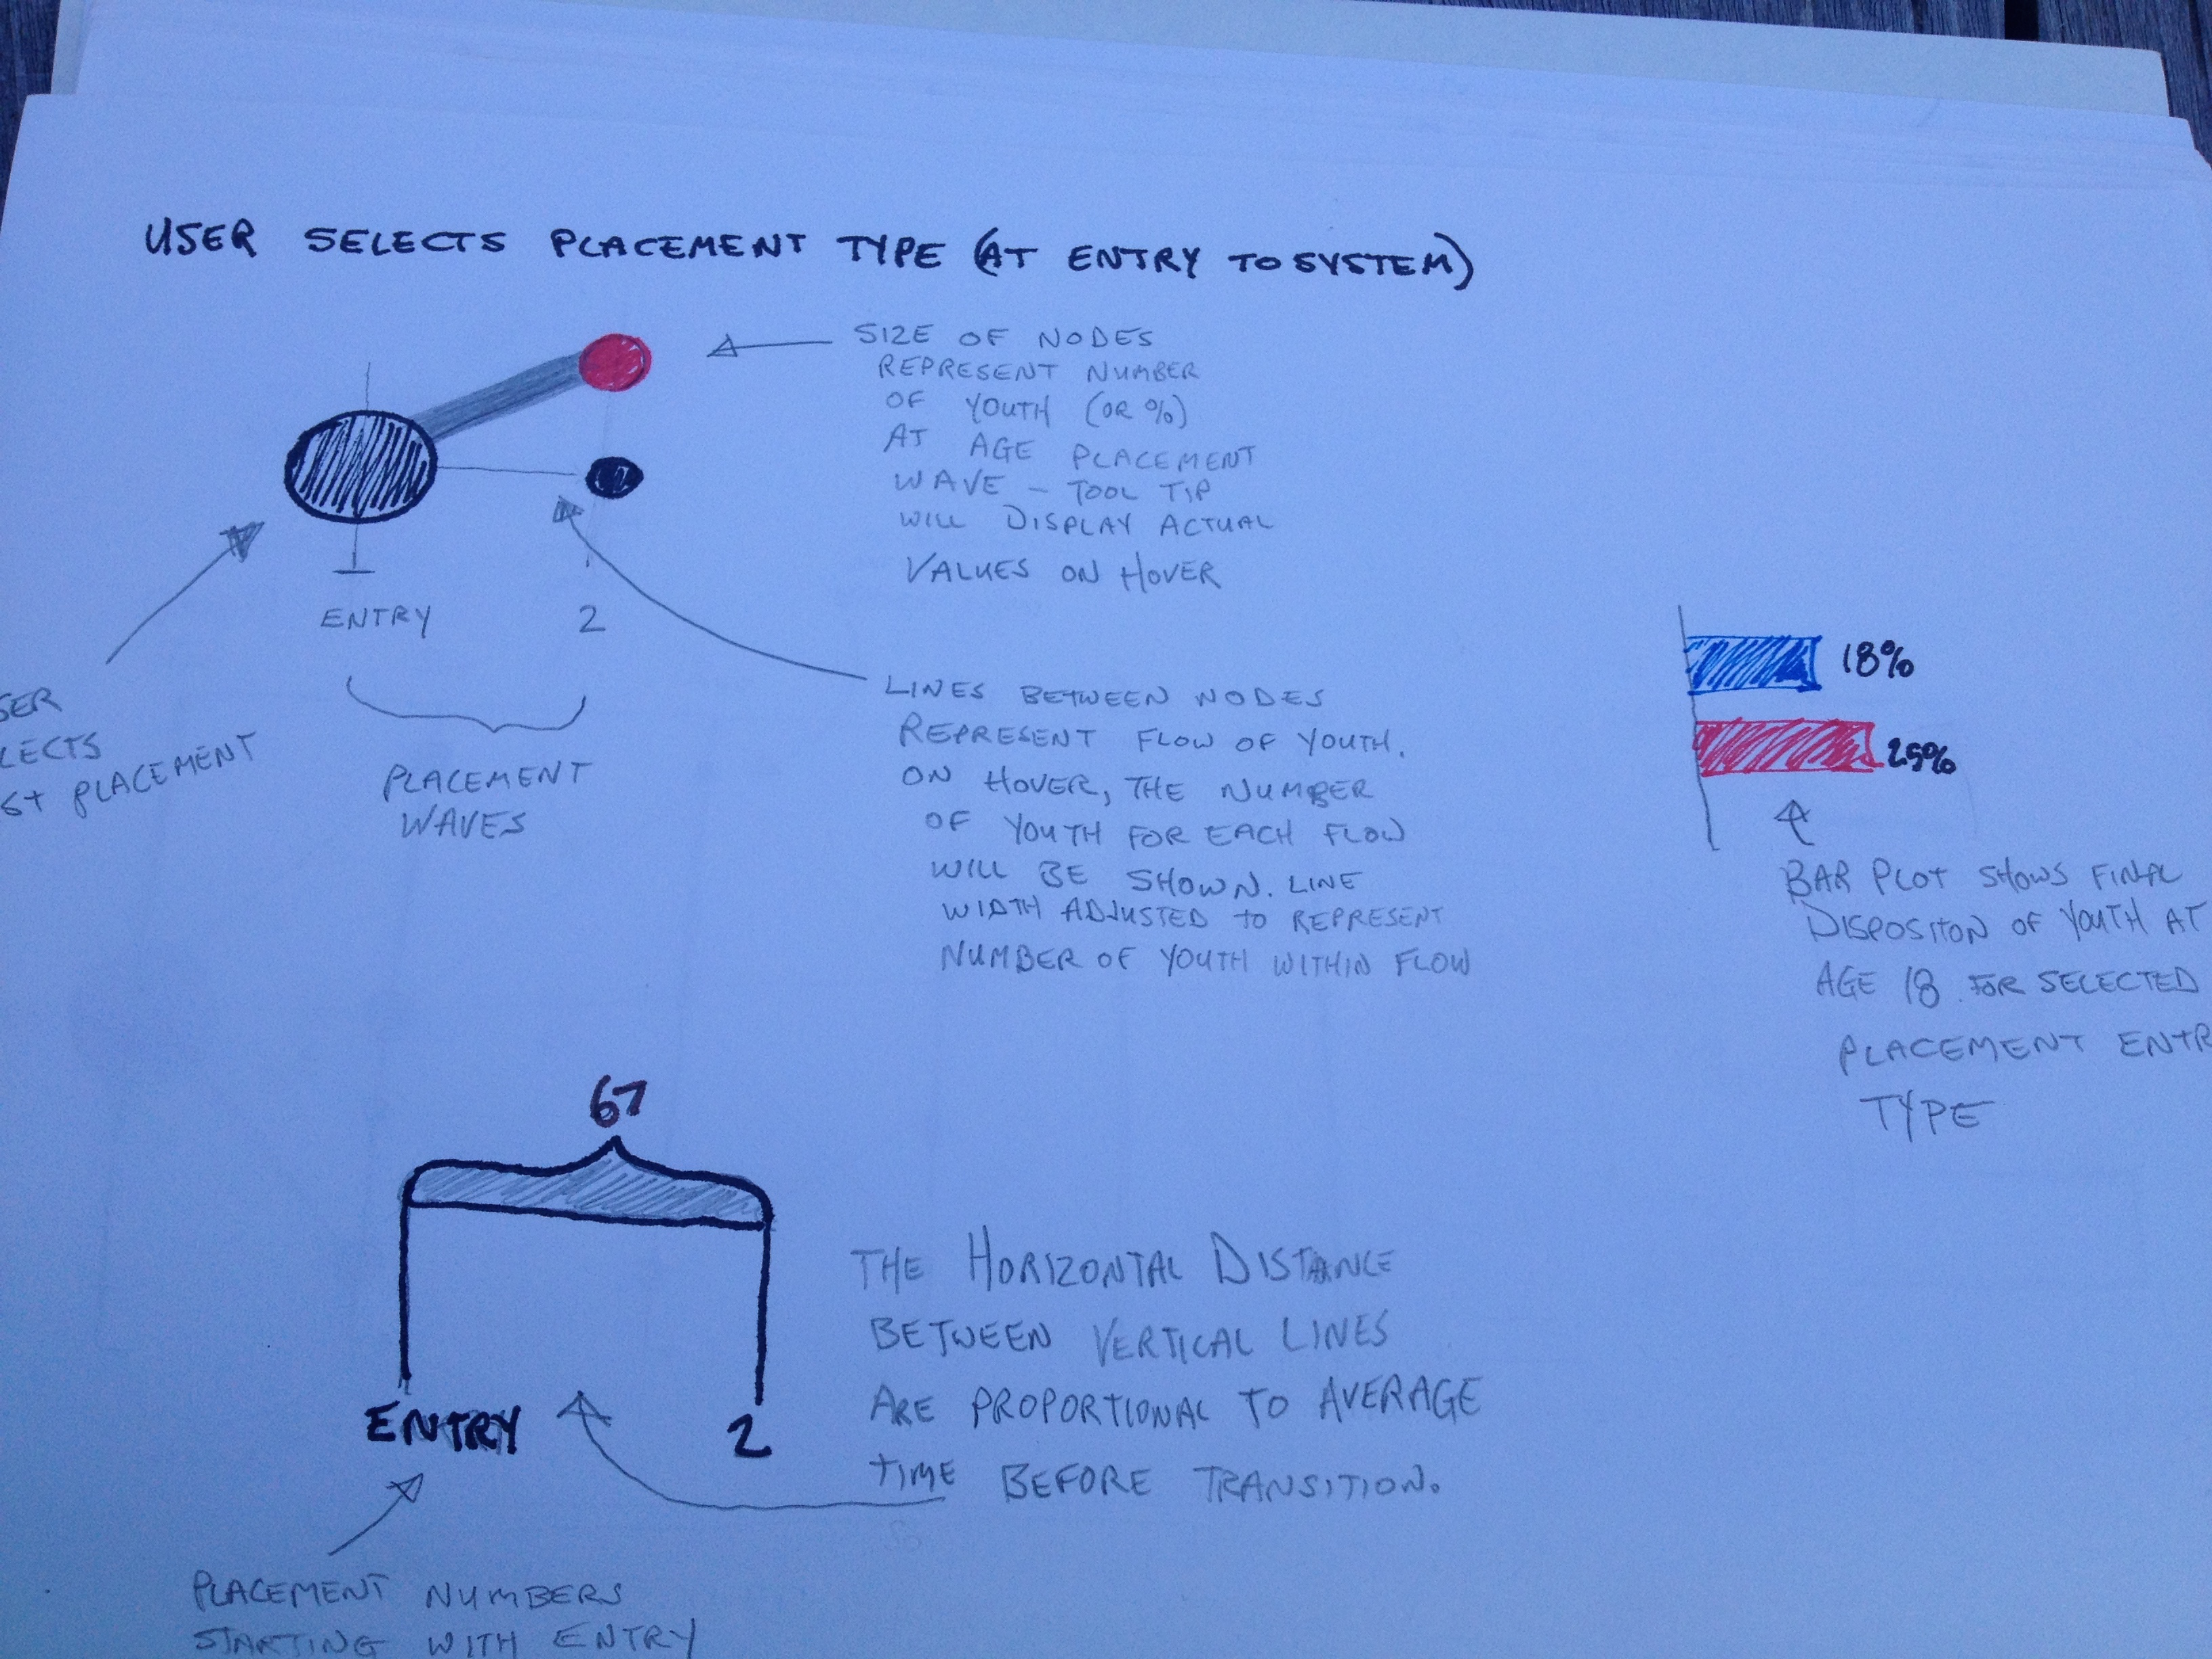 USER SELECTS PLACEMENT TYPE (AT ENTRY TO SYSTEM)
SIZE OF NODES
REPRESENT NUMBER
OF YOUTH (OR %)
AT AGE PLACEMENT
WAVE - TOOL TIP
WILL DISPLAY ACTUAL
VALUES ON HOVER
ENTRY 2
SER
LECTS
ST PLACEMENT
PLACEMENT
WAVES
LINES BETWEEN NODES
REPRESENT FLOW OF YOUTH.
ON HOVER, THE NUMBER
OF YOUTH FOR EACH FLOW
WILL BE SHOWN. LINE
WIDTH ADJUSTED TO REPRESENT
NUMBER OF YOUTH WITHIN FLOW
18%
25%
BAR PLOT SHOWS FINAL
DISPOSITON OF YOUTH AT
AGE 18 FOR SELECTED
PLACEMENT ENTR
TYPE
67
ENTRY 2
THE HORIZONTAL DISTANCE
BETWEEN VERTICAL LINES
ARE PROPORTIONAL TO AVERAGE
TIME BEFORE TRANSITION.
PLACEMENT NUMBERS
STARTING WITH ENTRY